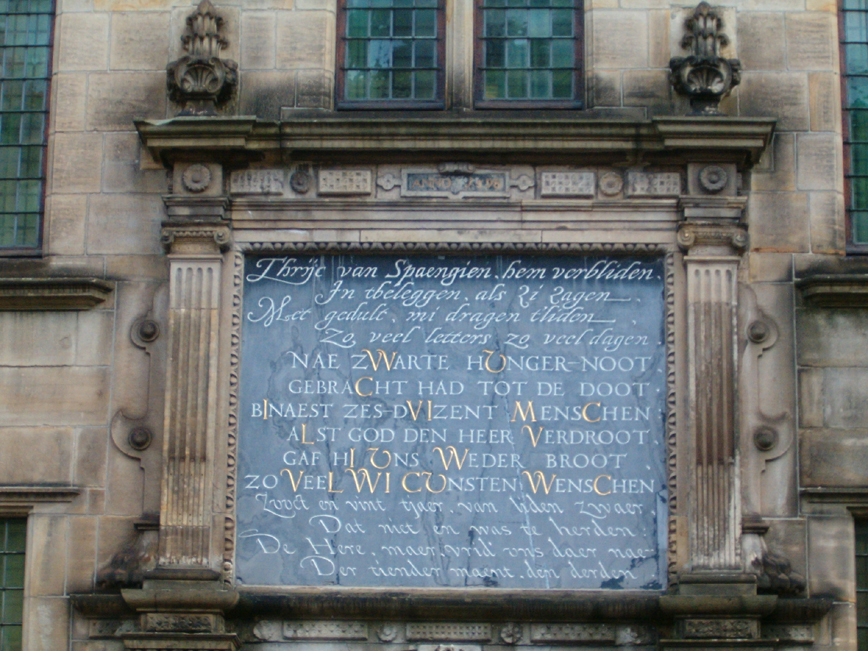 Thrijc van Spaengien. hem verbliden
In tbeleggen, als zi zagen
Met gedult, mi dragen tliden
Zo, veel letters zo, veel dagen.
NAE ZWARTE HUNGER-NOOT
GEBRACHT HAD TOT DE DOOT
BINAEST ZES-DVIZENT MENSCHEN
ALST GOD DEN HEER VERDROOT.
GAF HI UNS WEDER BROOT
ZO VEEL WI CUNSTEN WENSCHEN
en vint tjaer, van liden zwaer.
Dat niet en was te herden
De Here, maer, vrid' ons daer nae
Der tiender maent, den derden